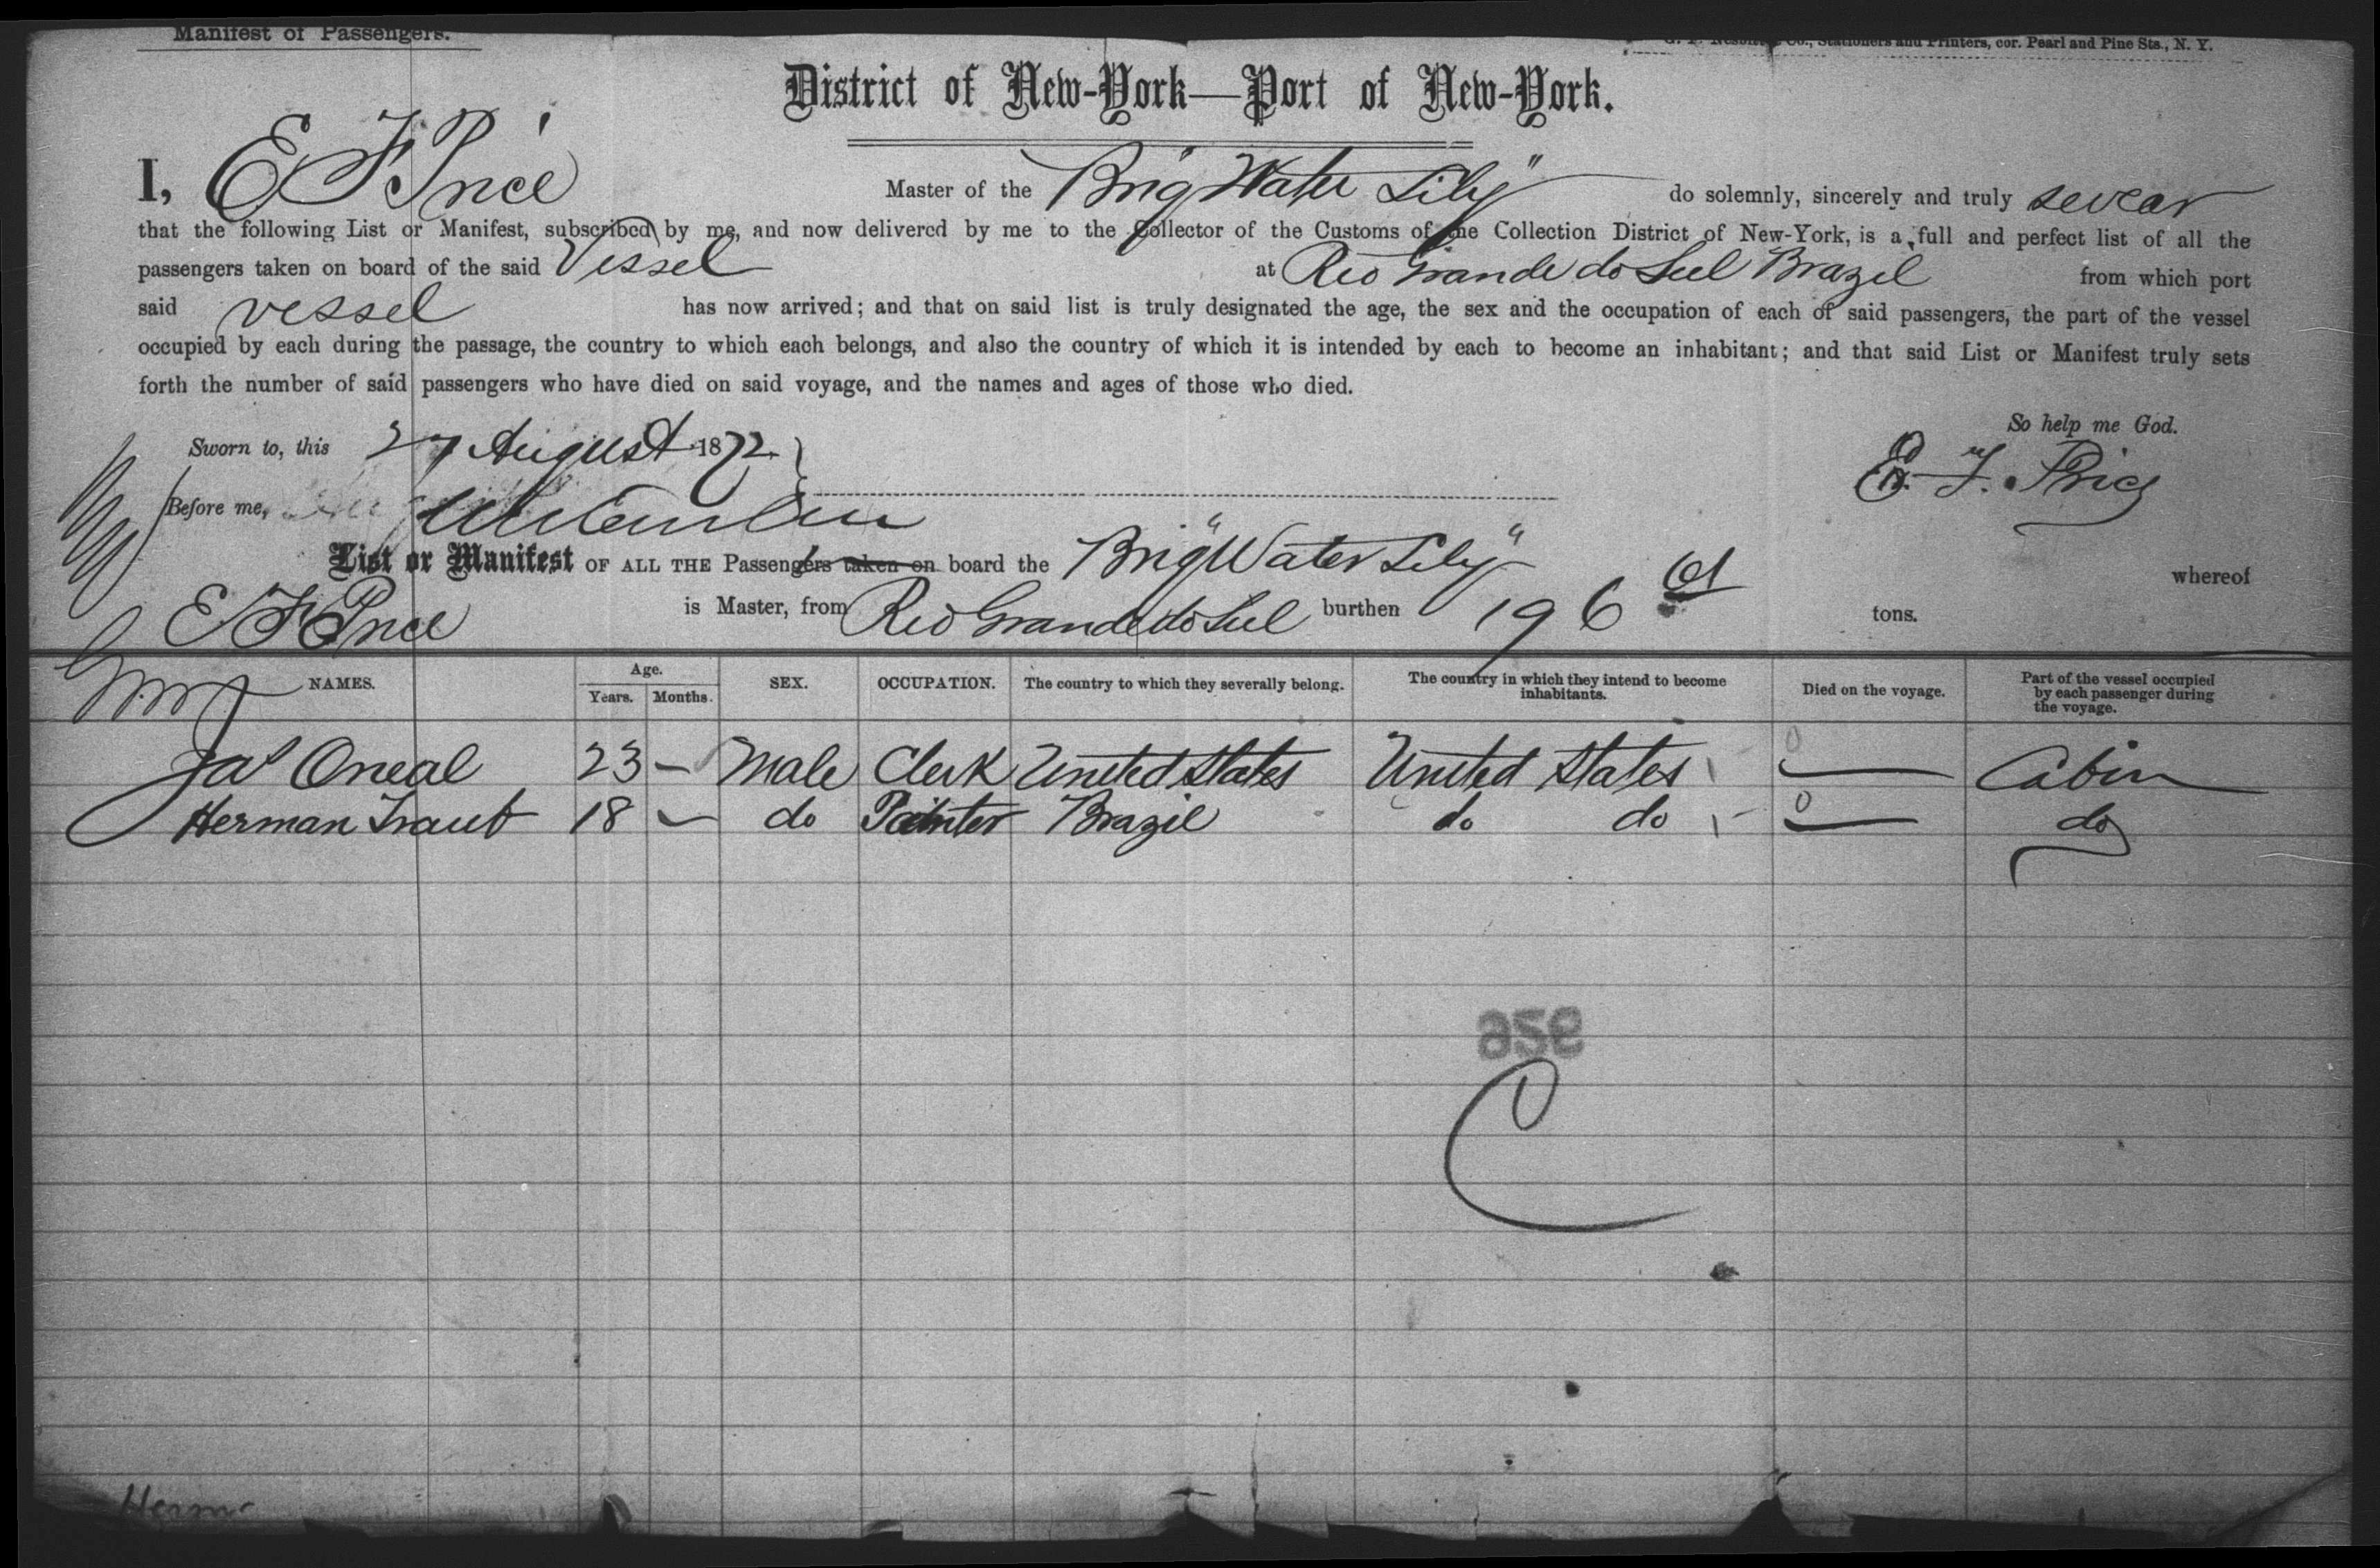 Manifest of Passengers.
Co., Stationers and Printers, cor. Pearl and Pine Sts., N. Y.
District of New-York—Port of New-York.
I, E F Price Master of the Brig "Water Lily" do solemnly, sincerely and truly swear
that the following List or Manifest, subscribed by me, and now delivered by me to the Collector of the Customs of the Collection District of New-York, is a full and perfect list of all the
passengers taken on board of the said Vessel at Rio Grande do Sul Brazil from which port
said vessel has now arrived; and that on said list is truly designated the age, the sex and the occupation of each of said passengers, the part of the vessel
occupied by each during the passage, the country to which each belongs, and also the country of which it is intended by each to become an inhabitant; and that said List or Manifest truly sets
forth the number of said passengers who have died on said voyage, and the names and ages of those who died.
So help me God.
Sworn to, this 27 August 1872
E. F. Price
Before me,
List or Manifest OF ALL THE Passengers taken on board the Brig "Water Lily" whereof
E F Price is Master, from Rio Grande do Sul burthen 196 tons.
NAMES. Age. Years. Months. SEX. OCCUPATION. The country to which they severally belong. The country in which they intend to become inhabitants. Died on the voyage. Part of the vessel occupied by each passenger during the voyage.
Jas Oneal 23 — Male Clerk United States United States 0 — Cabin
Herman Traub 18 — do Painter Brazil do do 0 — do
ase
C
Herm